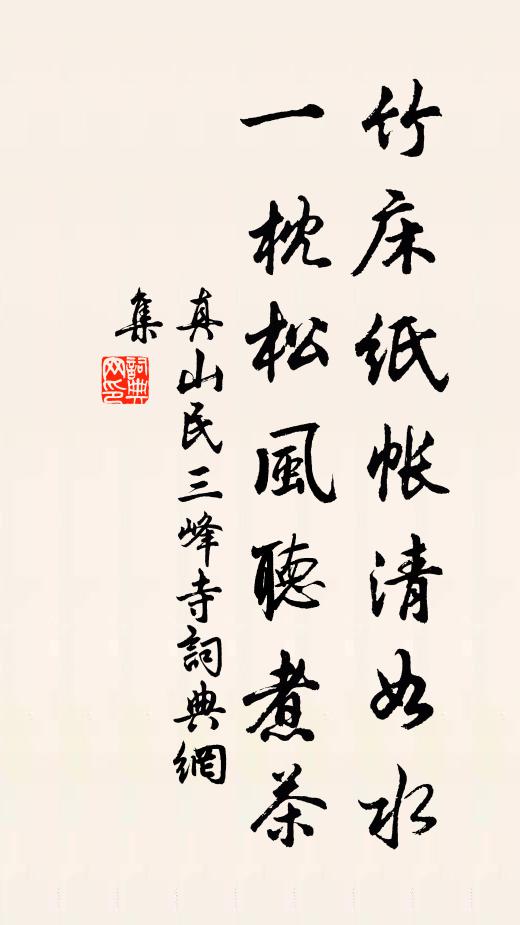 竹床紙帳清如水
一枕松風聽煮茶
真山民三峰寺詞典網
集
詞典
网印